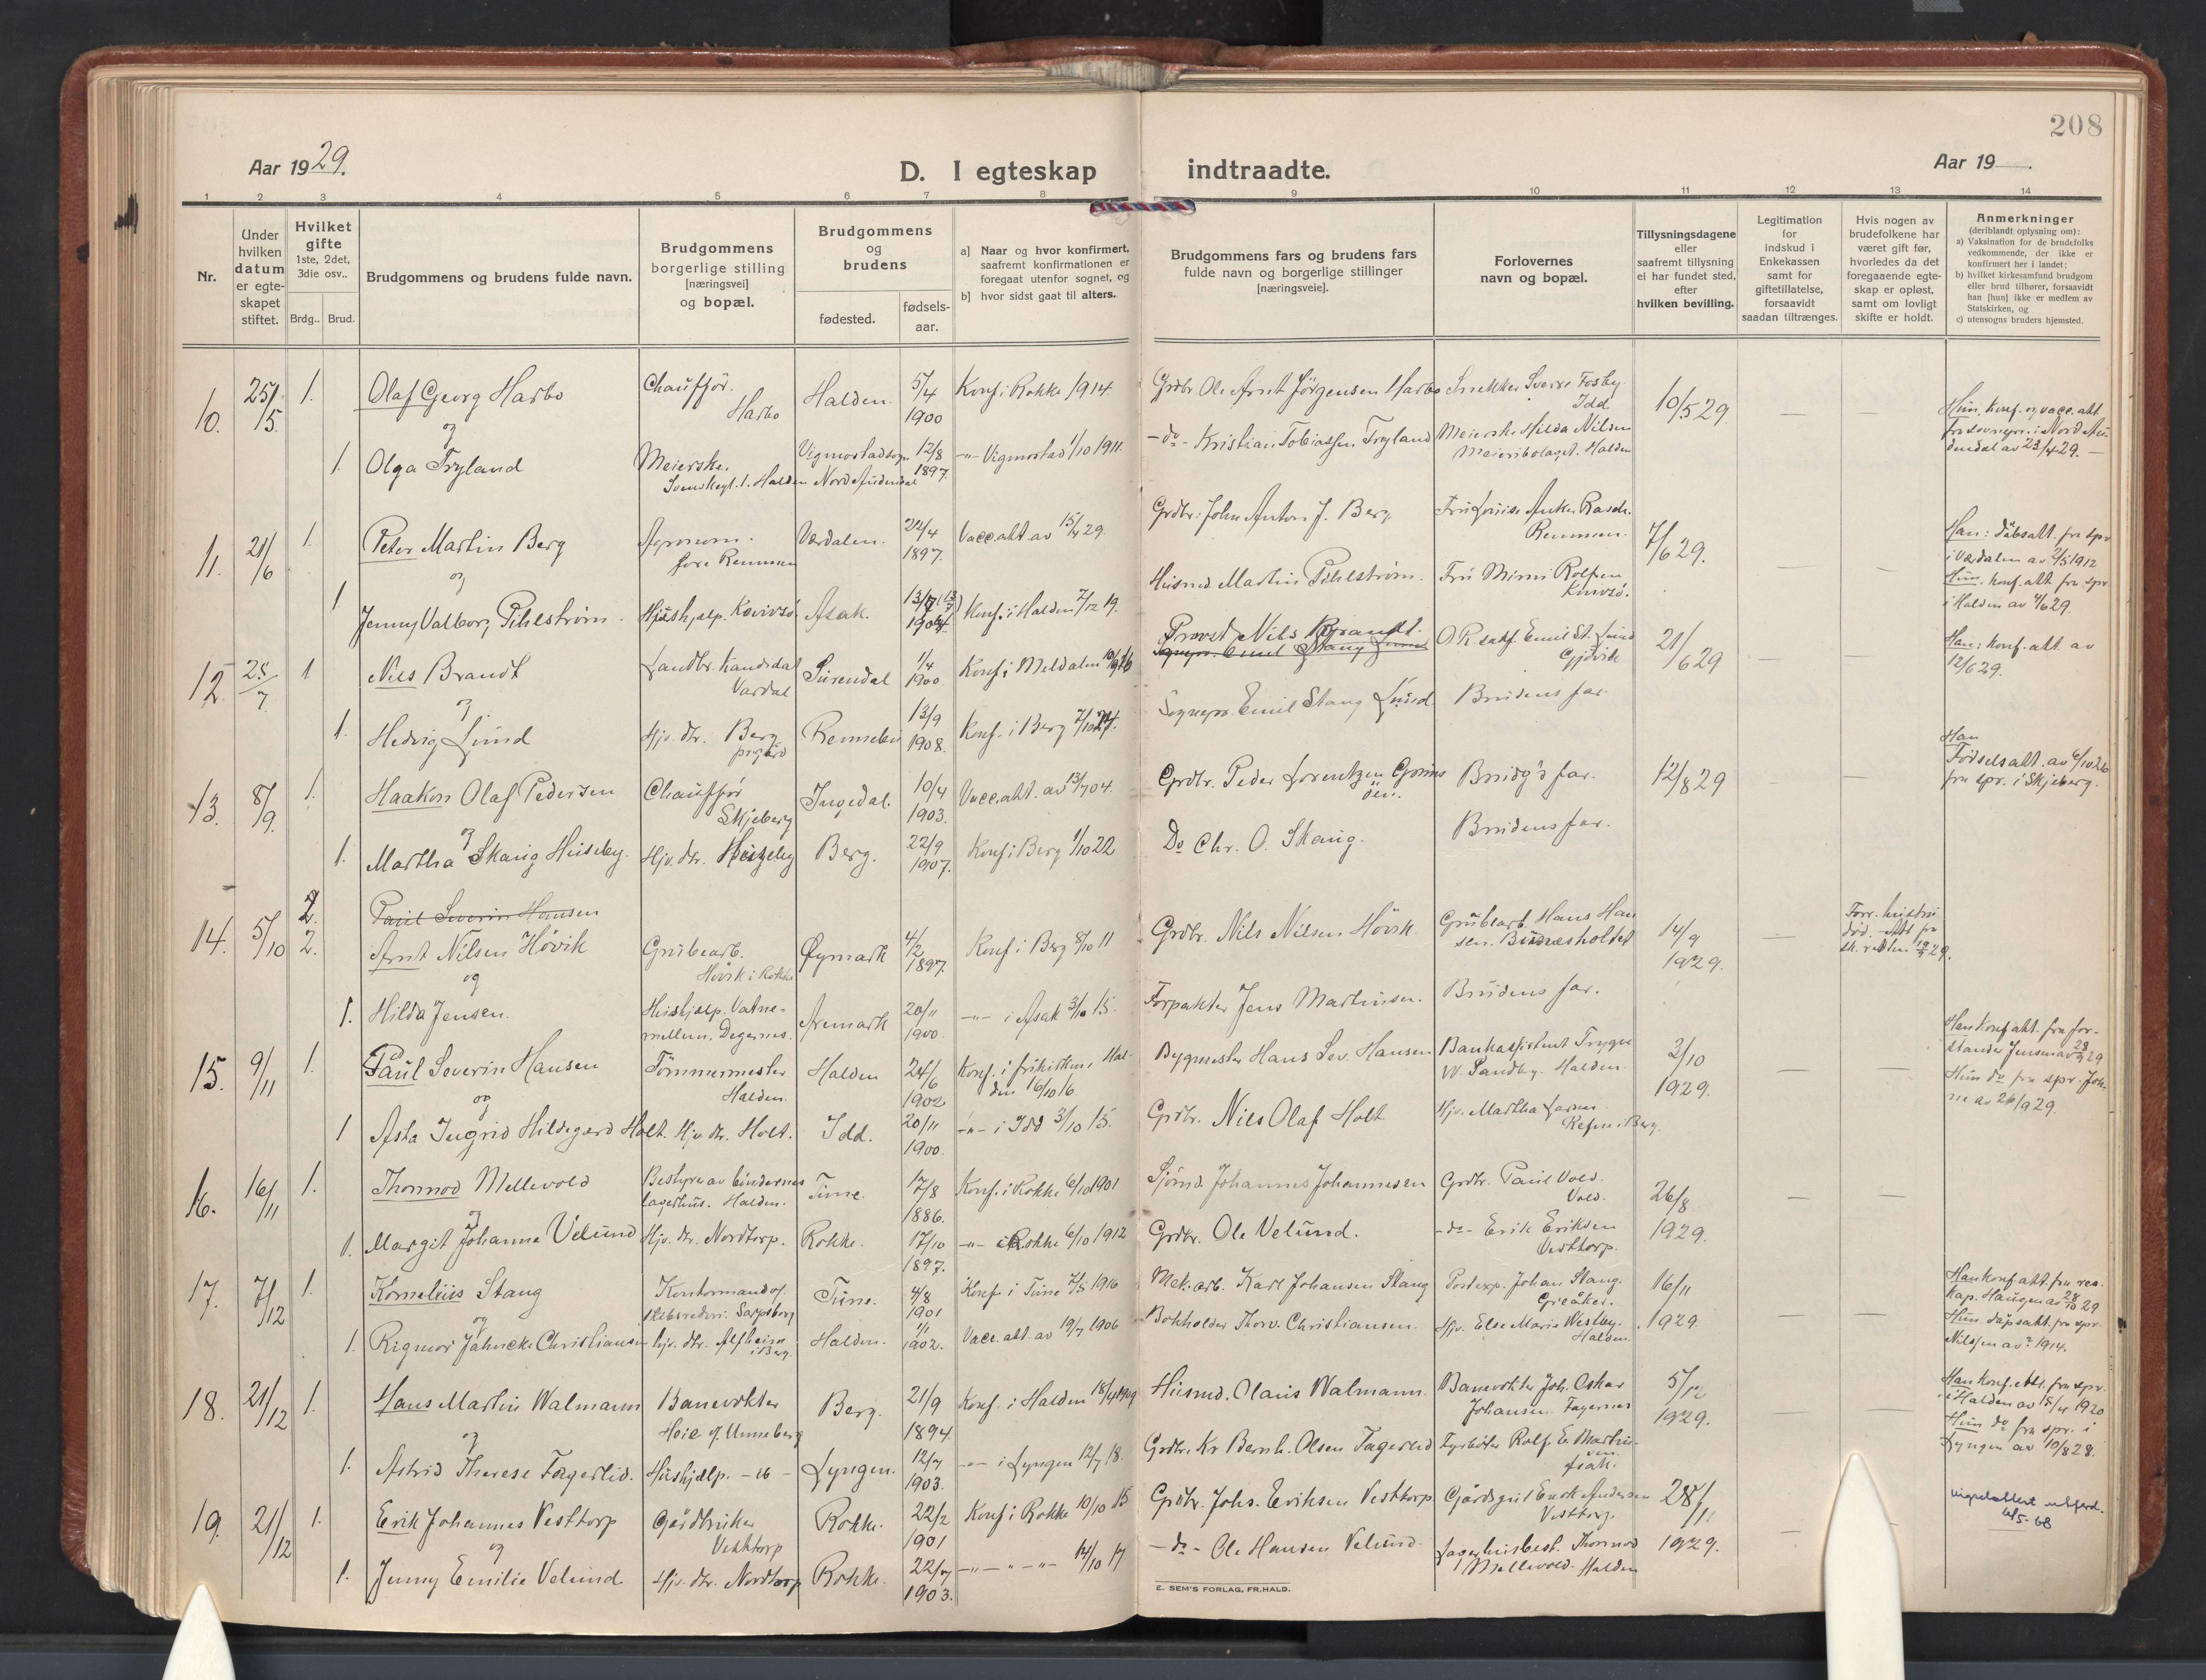 208
Aar 1929.
D. I egteskap indtraadte.
Aar 19 .
1 2 3 4 5 6 7 8 9 10 11 12 13 14
Nr.
Under hvilken datum er egte-skapet stiftet.
Hvilket gifte 1ste, 2det, 3die osv..
Brdg.. Brud.
Brudgommens og brudens fulde navn.
Brudgommens borgerlige stilling [næringsvei] og bopæl.
Brudgommens og brudens
fødested.
fødsels-aar.
a] Naar og hvor konfirmert, saafremt konfirmationen er foregaat utenfor sognet, og
b] hvor sidst gaat til alters.
Brudgommens fars og brudens fars fulde navn og borgerlige stillinger [næringsveie].
Forlovernes navn og bopæl.
Tillysningsdagene eller saafremt tillysning ei har fundet sted, efter hvilken bevilling.
Legitimation for indskud i Enkekassen samt for giftetillatelse, forsaavidt saadan tiltrænges.
Hvis nogen av brudefolkene har været gift før, hvorledes da det foregaaende egte-skap er opløst, samt om lovligt skifte er holdt.
Anmerkninger (deriblandt oplysning om):
a) Vaksination for de brudefolks vedkommende, der ikke er konfirmert her i landet;
b) hvilket kirkesamfund brudgom eller brud tilhører, forsaavidt han [hun] ikke er medlem av Statskirken, og
c) utensogns bruders hjemsted.
10. 25/5 1. Olaf Georg Harbo Chauffør. Harbo Halden. 5/4 1900 Konf. i Rokke 1914. Grdbr. Ole Arnt Jörgensen Harbo Snekker Sverre Fosby Idd 10/5 29. Hun. konf. og vacc. att.
og
1. Olga Tryland Meierske. Halden Vigmostad 12/8 1897. -"- Vigmostad 1/10 1911. -do- Kristian Tobiassen Tryland Meierske Hilda Nilsen Halden
11. 21/6 1. Peter Martin Berg Agronom. Remmen Værdalen. 24/4 1897. Vacc. att. av 15/4 29. Grdbr. John Anton J. Berg Fru Louise Anker Rasch. Remmen. 7/6 29. Han: dåbsatt. fra spr i Værdalen av 2/5 1912
og
1 Jenny Valborg Pihlstrøm. Hushjelp. Asak. 13/7 Konf. i Halden 7/12 19. Husmd. Martin Pihlstrøm. Fru Mimi Rolfsen Hun. konf. att. fra spr i Halden av 4/6 29.
12. 25/7 1 Nils Brandt Landbr. Kandidat Vardal Surendal 1/4 1900 Konf. i Meldalen Provst Nils Brandt. Emil St. Lund Gjøvik 21/6 29 Han: konf. att. av 12/6 29.
og
1. Hedvig Lund Hjv. dtr. Berg prgård Rennebu 13/9 1908. Konf. i Berg 7/10 24. Sognepr. Emil Stang Lund Brudens far.
13. 8/9. 1. Haakon Olaf Pedersen Chauffør Skjeberg Ingedal 10/4 1903. Vacc. att. av 13/7 04. Grdbr. Peder Lorentzen Brudg's far. 12/8 29 Han Fødselsatt. av 6/10 26 fra spr. i Skjeberg.
og
1. Martha Skaug Huseby. Hjv. dtr. Huseby Berg. 22/9 1907. Konf. i Berg 1/10 22 Do Chr. O. Skaug. Brudens far.
Paul Severin Hansen
14. 5/10 2. Arnt Nilsen Hövik Grubearb. Hövik i Rokke Øymark 4/2 1897. Konf. i Berg 8/10 11 Grdbr. Nils Nilsen Hövik Grubearb. Hans Hansen. 14/9 1929. Forr. hustru död.
og
1. Hilda Jensen. Hushjælp. Degernes. Aremark 20/11 1900. -"- i Asak 3/10 15. Forpakter Jens Martinsen. Brudens far.
15. 9/11 1. Paul Severin Hansen Tömmermester Halden. Halden 24/6 1902 Konf. i frikirken, Halden 16/10 16. Bygmester Hans Sev. Hansen Bankassistent Trygve W. Sandby. Halden. 2/10 1929. Han konf. att. fra forstander Jensen av 28/9 29
og
1 Asta Ingrid Hildegard Holt. Hjv. dtr. Holt. Idd. 20/11 1900. -"- i Idd 3/10 15. Grdbr. Nils Olaf Holt Hjv. Martha Larsen i Berg. Hun do fra spr. av 26/9 29.
16. 16/11 1. Thormod Mellevold Bestyrer av böndernes lagerhus. Halden. Tune. 17/8 1886. Konf. i Rokke 6/10 1901 Sjömd. Johannes Johannesen Grdbr. Paul Vold. Vold. 26/8 1929.
og
1. Margit Johanne Velund Hjv. dtr. Nordtorp. Rokke. 17/10 1897. -"- i Rokke 6/10 1912 Grdbr. Ole Velund. -do- Erik Eriksen Vesttorp.
17. 7/12 1. Kornelius Stang Kontormand Sarpsborg Tune. 4/8 1901 Konf. i Tune 7/5 1916 Mek. arb. Karl Johansen Stang Postexp. Johan Stang. Greåker. 16/11 1929. Han konf. att. fra res. kap. Haugen av 28/10 29
og
1. Rigmor Jahncke Christiansen hjv. dtr. Alfheim i Berg. Halden. 1/11 1902. Vacc. att. av 19/7 1906 Bokholder Thorv. Christiansen. Hjv. Else Marie Westby. Halden. Hun. dåpsatt. fra spr. Nilssen av 1914.
18. 21/12 1. Hans Martin Walmann Banevokter Berg. 21/9 1894. Konf. i Halden Husmd. Olaus Walmann. Banevokter Joh. Oskar Johansen. Fagernes 5/12 1929. Han konf. att. fra spr. i Halden av 15/4 1920
og
1. Astrid Therese Fagerlid. Hushjælp. Lyngen. 12/7 1903. -"- i Lyngen 12/7 18. Grdbr. Kr. Bernh. Olsen Fagerlid Fyrböter Rolf E. Martinsen. Asak. Hun do fra spr. i Lyngen av 10/8 28.
19. 21/12 1. Erik Johannes Vesttorp Gårdbruker Vesttorp Rokke. 22/2 1901 Konf. i Rokke 10/10 15 Grdbr. Johs. Eriksen Vesttorp Gårdsgut Erik Andersen Vesttorp 28/11 1929. vigselattest utferd. 6/5-68
og
1. Jenny Emilie Velund Hjv. dtr. Nordtorp Rokke. 22/7 1903. -"- 14/10 17 -do- Ole Hansen Velund. Lagerhusbest. Thormod Mellevold. Halden
E. SEM'S FORLAG, FR.HALD.